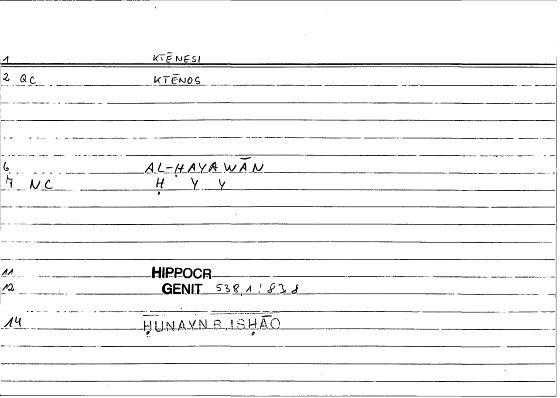 1 KTĒNESI
2 QC KTĒNOS
6 AL-ḤAYAWĀN
7 NC Ḥ Y Y
11 HIPPOCR
12 GENIT 538,1:838
14 ḤUNAYN B. ISḤĀQ